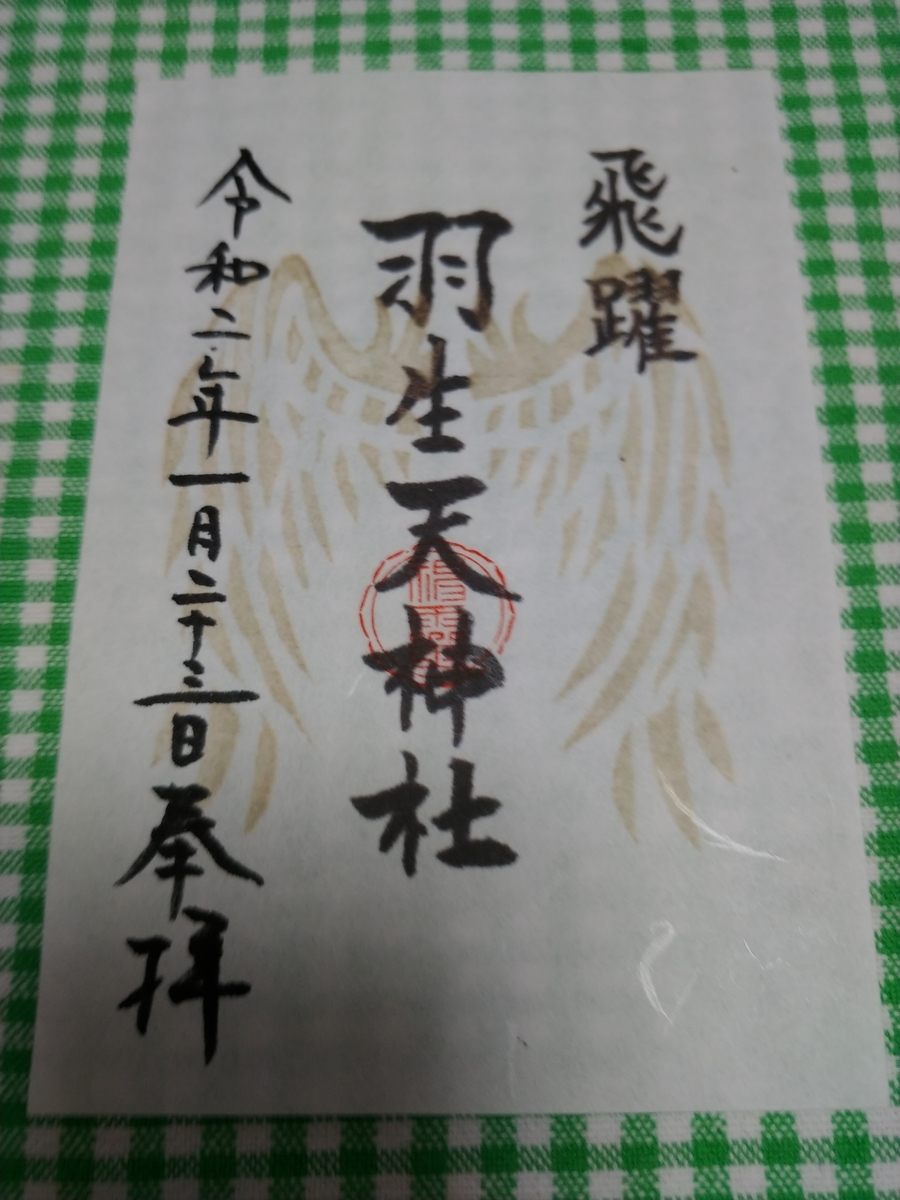 飛躍
羽生天神社
令和二年一月二十三日奉拝